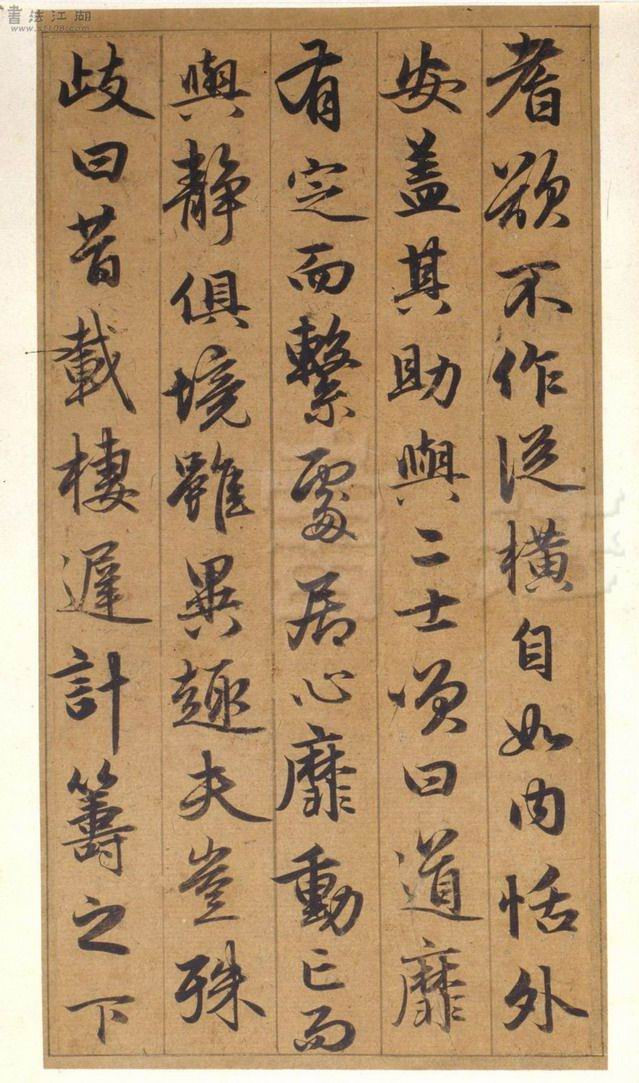 書法江湖
www.sf108.com
耆欲不作從橫自如內恬外
安盖其助與二士頌曰道靡
有定而繫處居心靡動亡而
與靜俱境雖異趣夫豈殊
歧曰昔載棲遲計籌之下